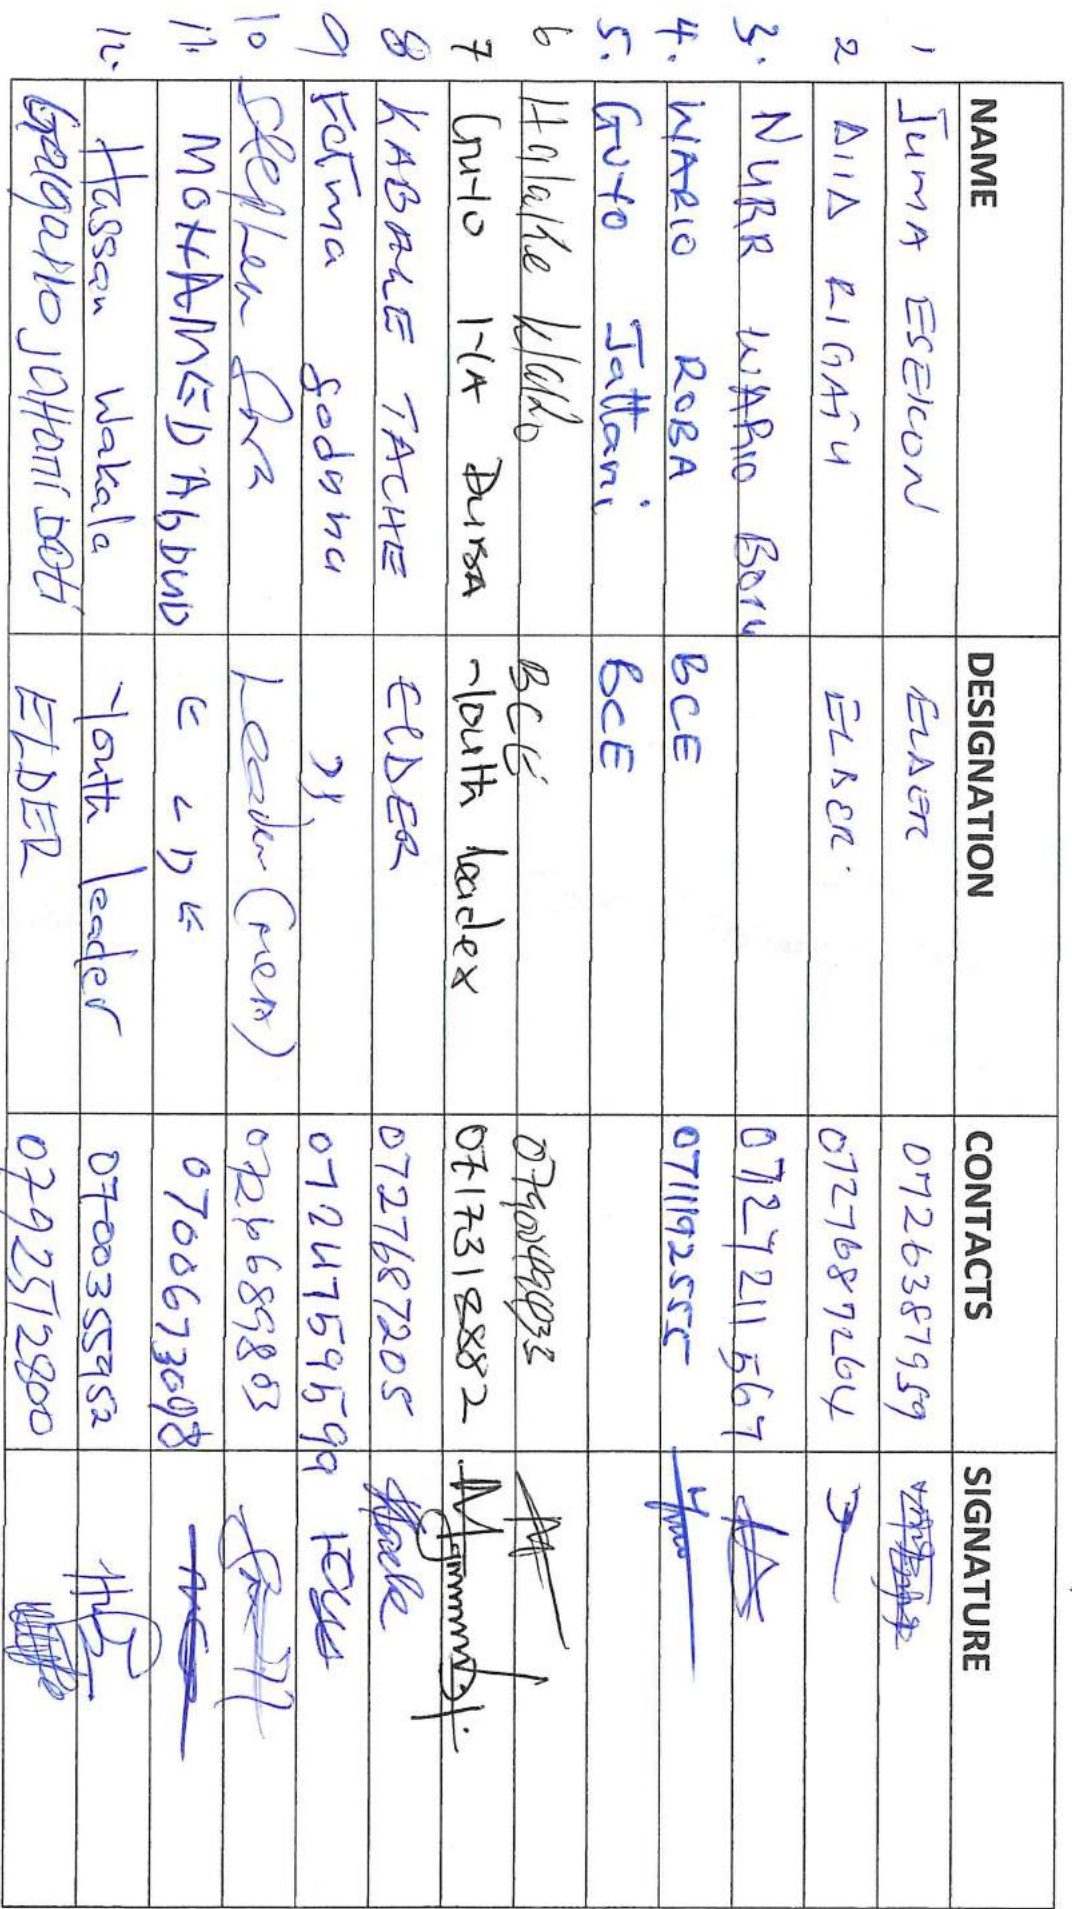 NAME DESIGNATION CONTACTS SIGNATURE
1 JUMA ESEKON ELDER 0726387959
2 DIIA RIGAFU ELDER. 0727687264
3. NURR WARIO BORU 0727211567
4. WARIO ROBA BCE 0711192555
5. GUYO Jattani BCE
6 Halake Wario BCE 0790499033
7 Guyo HA DURSA Youth leader 0717310882
8 KABALE TACHE ELDER 0727687205
9 Fatma Godana ,, 0724759599
10 Stephen Leader (men) 0726689803
11. MOHAMED AbDUB E L D E 0700673098
12. Hassan Wakala Youth leader 0700355952
Galgallo JAttani DOti ELDER 0792512800